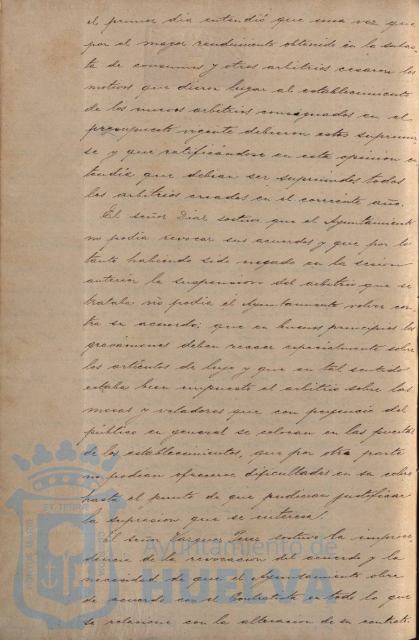 el primer día entendió que una vez que
por el mayor rendimiento obtenido en la subas-
ta de consumos y otros arbitrios cesaron los
motivos que dieron lugar al establecimiento
de los nuevos arbitrios consignados en el
presupuesto vigente debieron estos suprimir
se y que ratificándose en esta opinión en
tendía que debían ser suprimidos todos
los arbitrios creados en el corriente año.
El señor Díaz sostuvo que el Ayuntamiento
no podía revocar sus acuerdos y que por lo
tanto habiendo sido negado en la sesión
anterior la suspensión del arbitrio que se
trataba no podía el Ayuntamiento volver con
tra su acuerdo; que en buenos principios los
gravámenes deben recaer especialmente sobre
los artículos de lujo y que en tal sentido
estaba bien impuesto el arbitrio sobre las
mesas y veladores que con perjuicio del
público en general se colocan en las puertas
de los establecimientos, que por otra parte
no podían ofrecerse dificultades en su cobro
hasta el punto de que pudieran justificar
la supresión que se interesa.
El señor Vázquez Pérez sostuvo la improce
dencia de la revocación del acuerdo y la
necesidad de que el Ayuntamiento obre
de acuerdo con el Contratista en todo lo que
se relacione con la alteración de su contrato
Ayuntamiento de
HUELVA